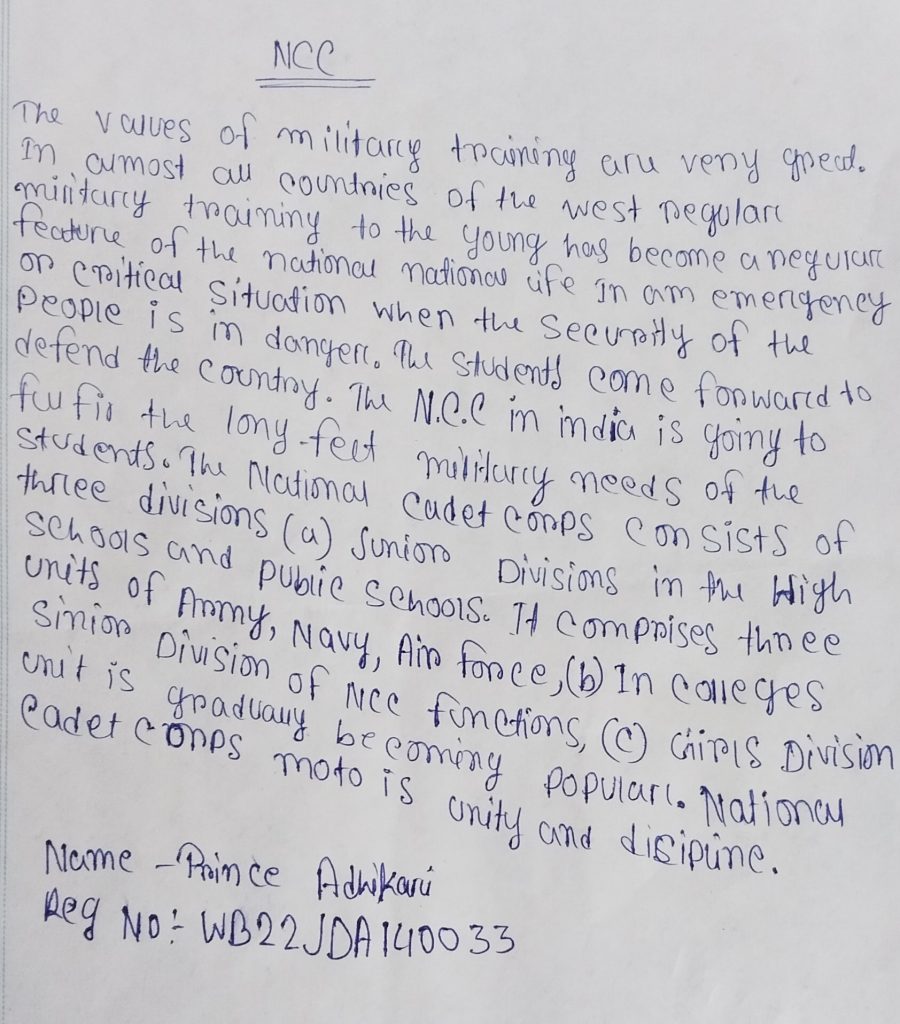 NCC
The values of military training are very great.
In almost all countries of the west regular
military training to the young has become a regular
feature of the national national life In am emergency
or critical situation when the security of the
people is in danger. The students come forward to
defend the country. The N.C.C in india is going to
fulfil the long-felt military needs of the
students. The National Cadet Corps consists of
three divisions (a) Junior Divisions in the High
schools and public schools. It comprises three
units of Army, Navy, Air force, (b) In colleges
Sinior Division of NCC functions, (C) Girls Division
unit is gradually becoming popular. National
Cadet Corps moto is unity and disipline.
Name - Prince Adhikari
Reg No:- WB22JDA140033